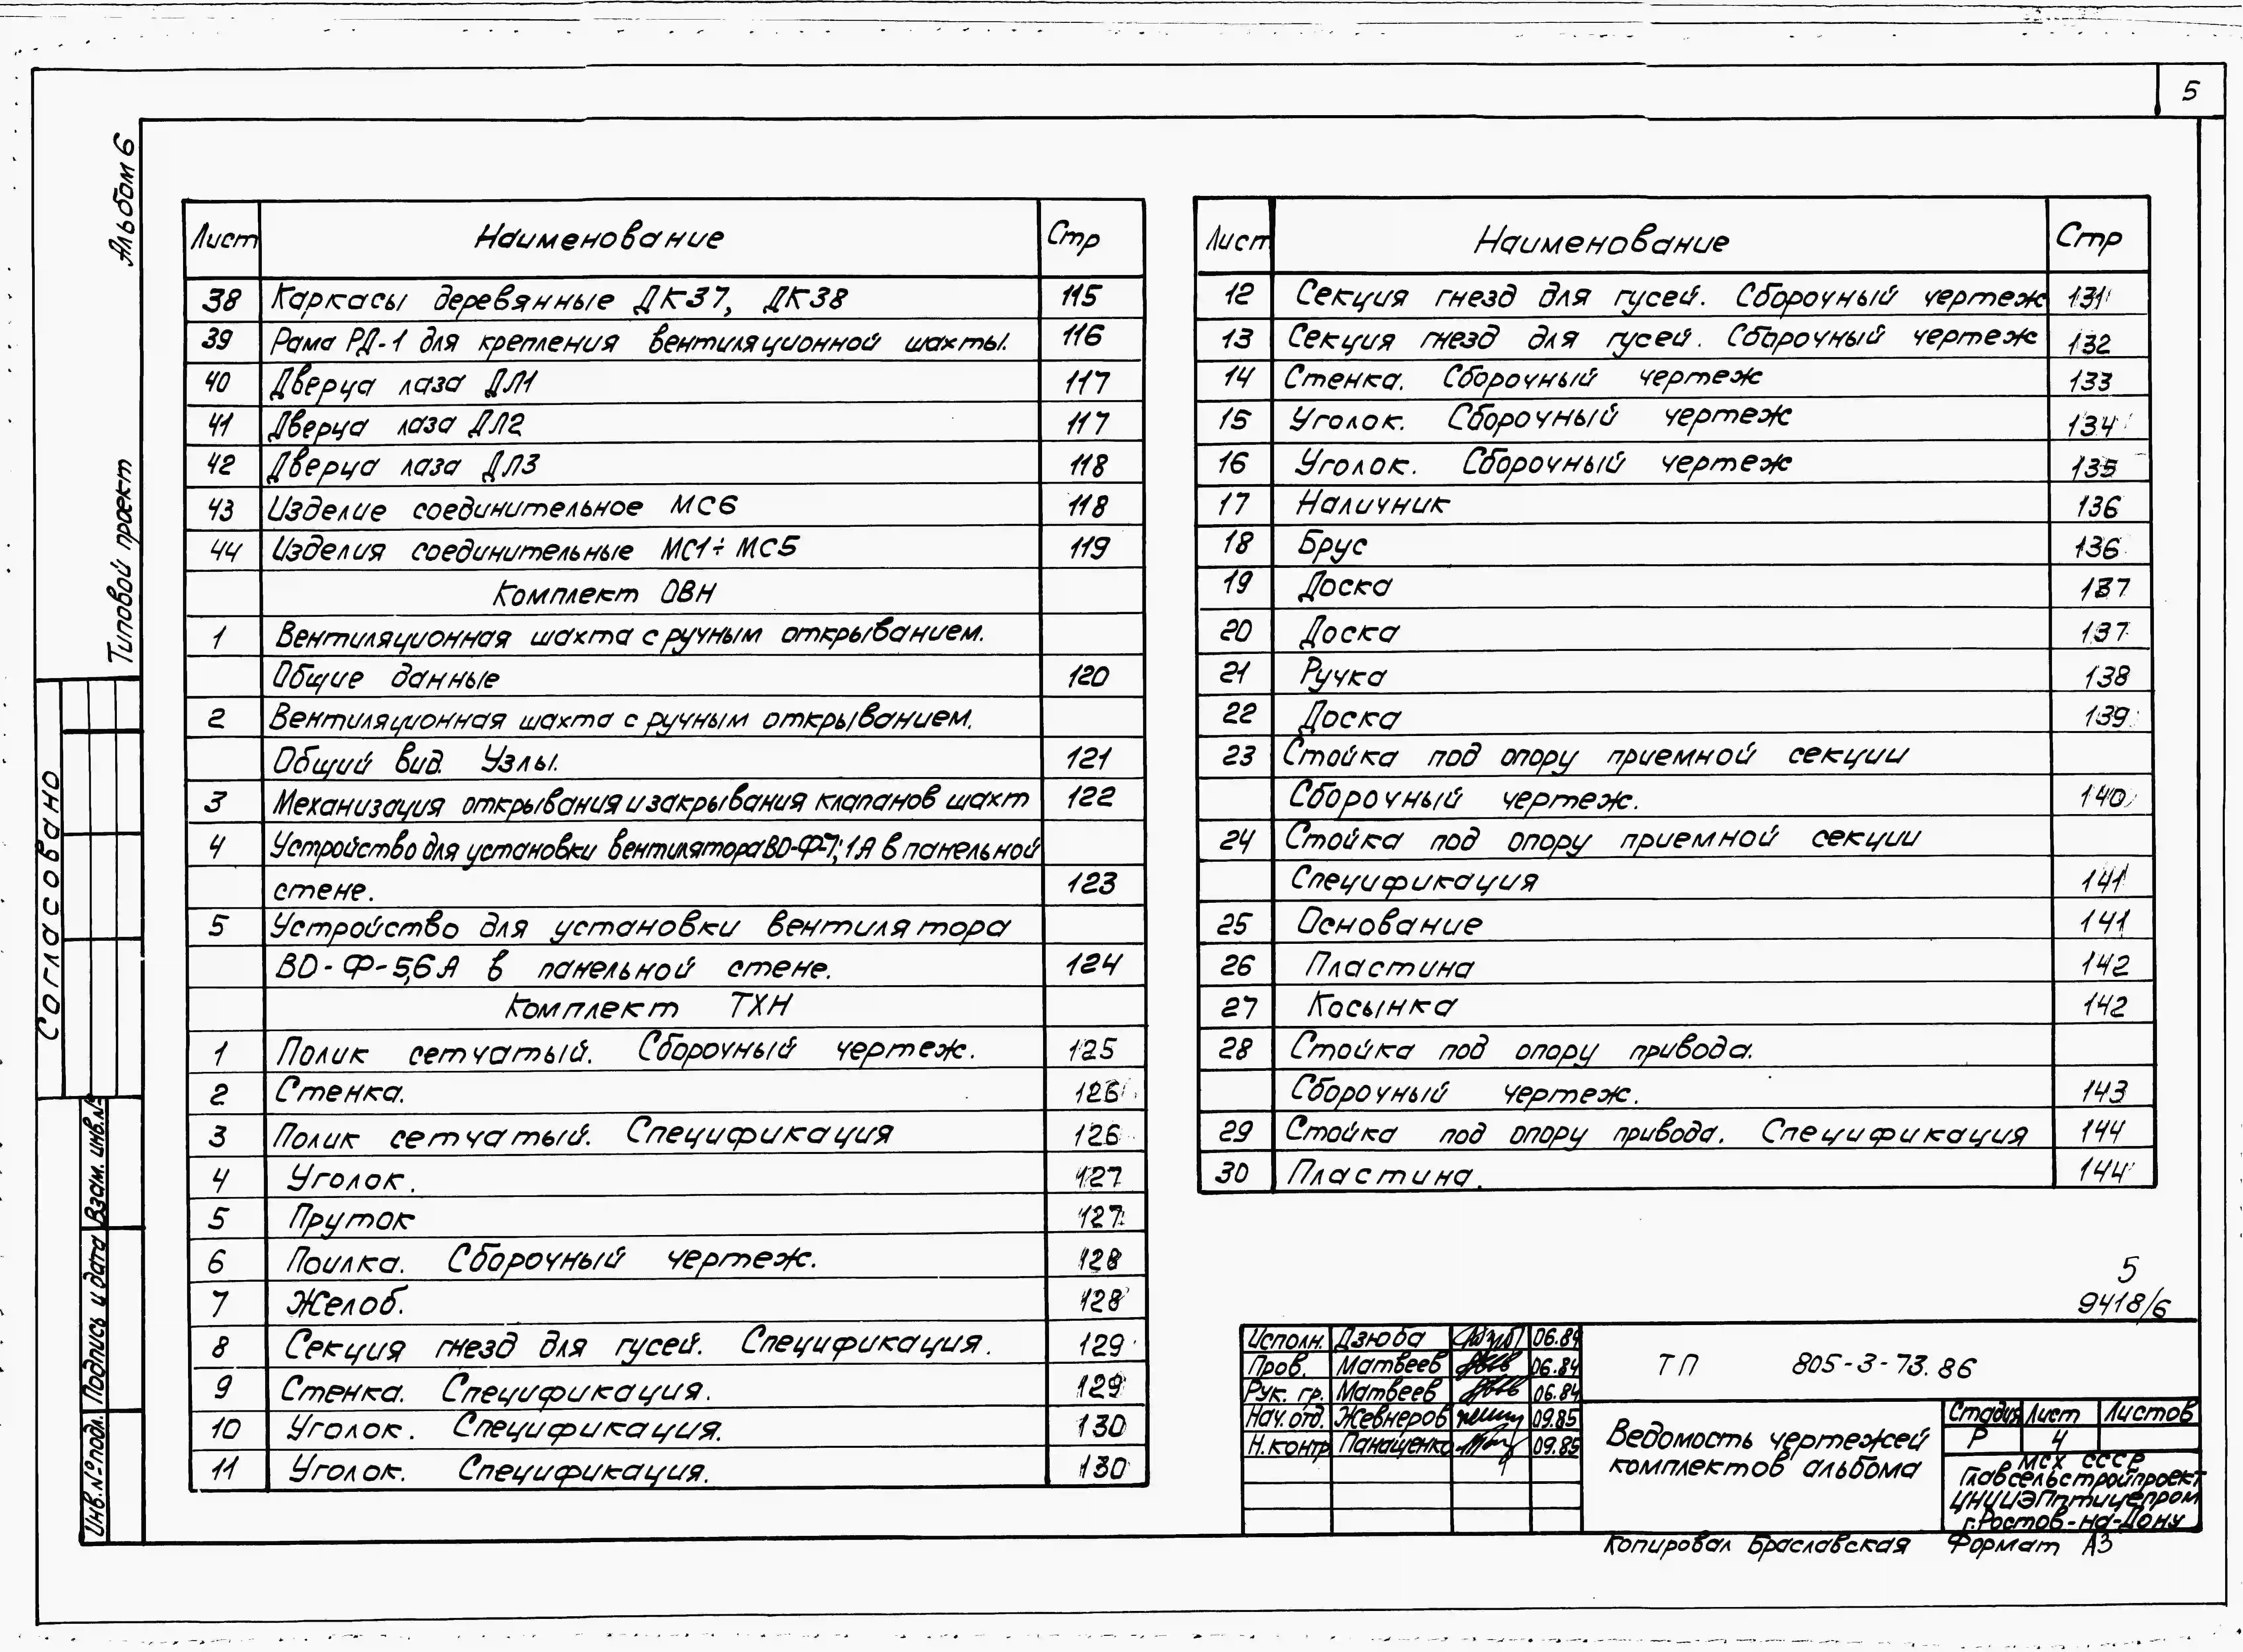 5
Альбом 6
Типовой проект
Согласовано
Взам. инв.№
Подпись и дата
Инв.№ подл.
Лист Наименование Стр
38 Каркасы деревянные ДК37, ДК38 115
39 Рама РД-1 для крепления вентиляционной шахты. 116
40 Дверца лаза ДЛ1 117
41 Дверца лаза ДЛ2 117
42 Дверца лаза ДЛ3 118
43 Изделие соединительное МС6 118
44 Изделия соединительные МС1÷МС5 119
Комплект ОВН
1 Вентиляционная шахта с ручным открыванием.
Общие данные 120
2 Вентиляционная шахта с ручным открыванием.
Общий вид. Узлы. 121
3 Механизация открывания и закрывания клапанов шахт 122
4 Устройство для установки вентилятора ВО-Ф-7,1А в панельной
стене. 123
5 Устройство для установки вентилятора
ВО-Ф-5,6А в панельной стене. 124
Комплект ТХН
1 Полик сетчатый. Сборочный чертеж. 125
2 Стенка. 126
3 Полик сетчатый. Спецификация 126
4 Уголок. 127
5 Пруток 127
6 Поилка. Сборочный чертеж. 128
7 Желоб. 128
8 Секция гнезд для гусей. Спецификация. 129
9 Стенка. Спецификация. 129
10 Уголок. Спецификация. 130
11 Уголок. Спецификация. 130
Лист Наименование Стр
12 Секция гнезд для гусей. Сборочный чертеж 131
13 Секция гнезд для гусей. Сборочный чертеж 132
14 Стенка. Сборочный чертеж 133
15 Уголок. Сборочный чертеж 134
16 Уголок. Сборочный чертеж 135
17 Наличник 136
18 Брус 136
19 Доска 137
20 Доска 137
21 Ручка 138
22 Доска 139
23 Стойка под опору приемной секции
Сборочный чертеж. 140
24 Стойка под опору приемной секции
Спецификация 141
25 Основание 141
26 Пластина 142
27 Косынка 142
28 Стойка под опору привода.
Сборочный чертеж. 143
29 Стойка под опору привода. Спецификация 144
30 Пластина. 144
5
9418/6
Исполн. Дзюба 06.84
Пров. Матвеев 06.84
Рук. гр. Матвеев 06.84
Нач. отд. Жевнеров 09.85
Н.контр Панащенко 09.85
ТП 805-3-73.86
Ведомость чертежей
комплектов альбома
Стадия Лист Листов
Р 4
МСХ СССР
Главсельстройпроект
ЦНИИЭПптицепром
г.Ростов-на-Дону
Копировал Браславская Формат А3